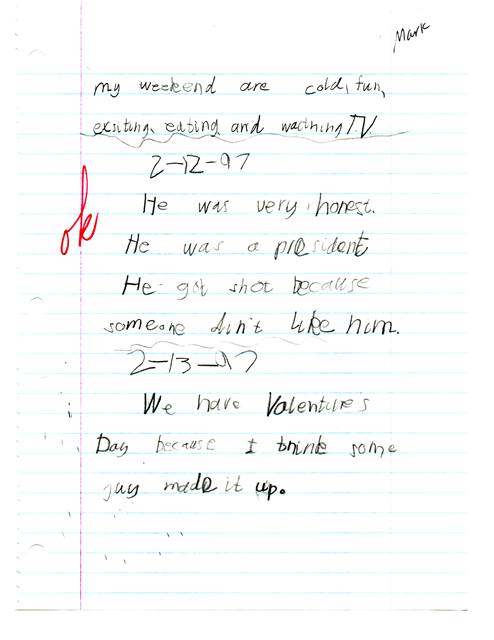 Mark
my weekend are cold, fun,
exsiting, eating and wacthing TV
2-12-97
ok
He was very honest.
He was a president
He got shot because
someone din't like him.
2-13-97
We have Valentine's
Day because I think some
guy made it up.